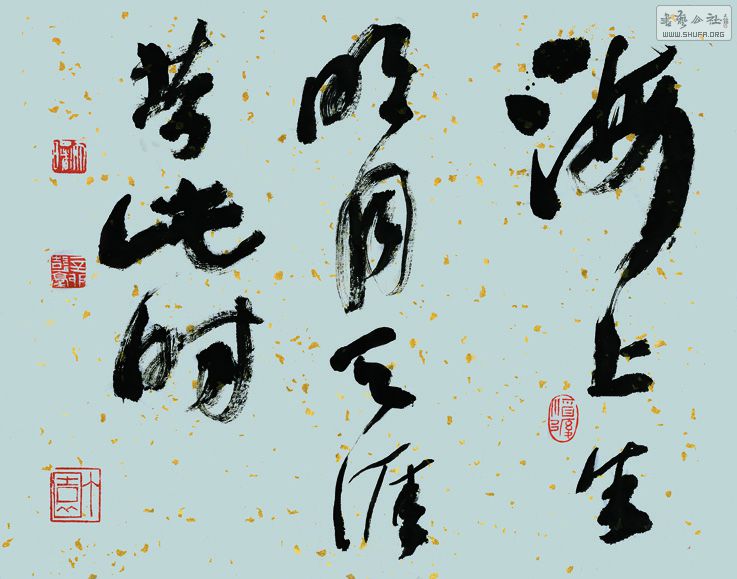 書藝公社
WWW.SHUFA.ORG
海上生
明月天涯
共此时